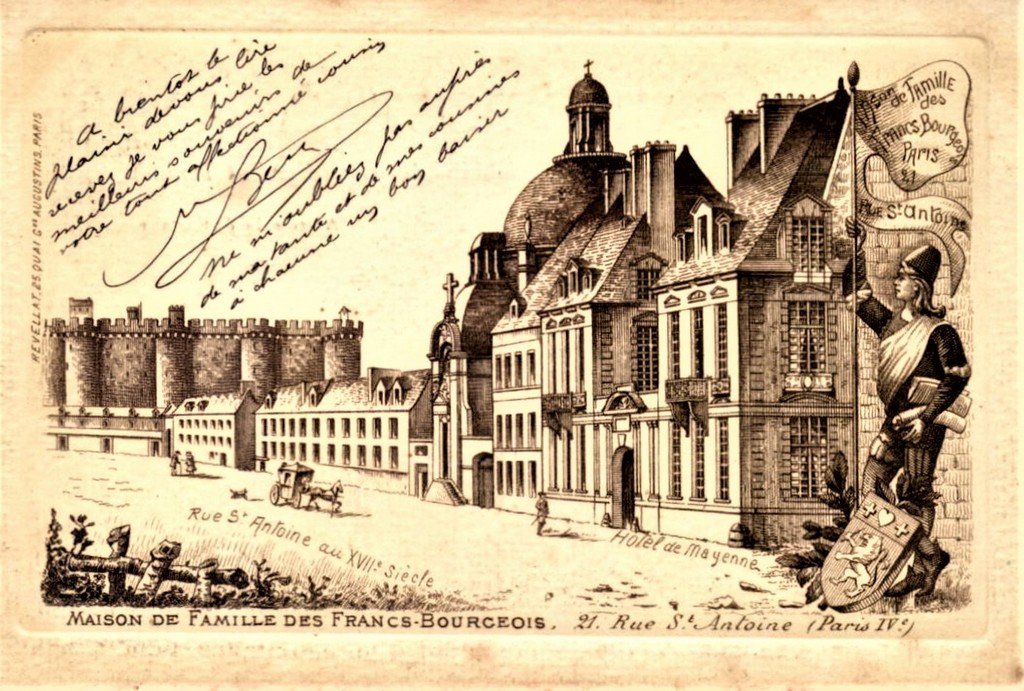 A bientot le
plaisir de vous lire
recevez je vous prie les
meilleurs souvenirs de
votre tout affectionné cousin
ne m'oubliez pas auprès
de ma tante et de mes cousines
à chacune un bon baiser
REVELLAT, 25 QUAI Gds AUGUSTINS. PARIS
Maison
de Famille
des
Francs Bourgeois
PARIS
21
RUE St Antoine
Rue St Antoine au XVIIe Siècle
Hôtel de Mayenne
MAISON DE FAMILLE DES FRANCS-BOURGEOIS. 21. Rue St Antoine (Paris IVe)